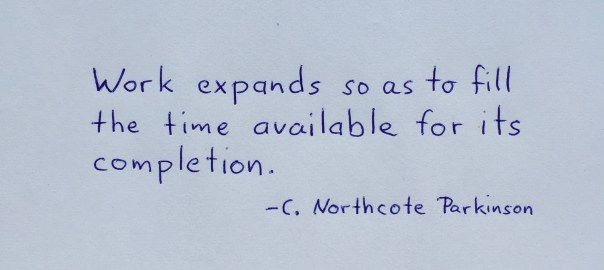 Work expands so as to fill
the time available for its
completion.
-C. Northcote Parkinson